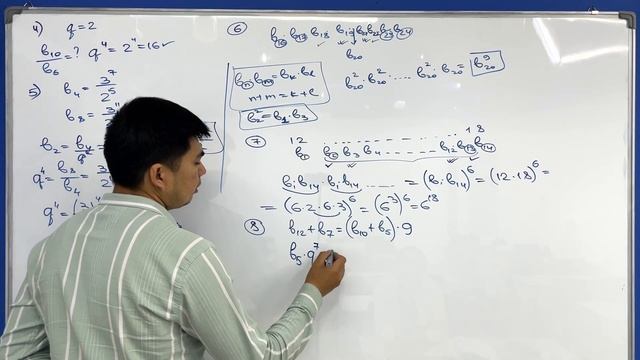 4) q=2
b₁₀/b₆=? q⁴=2⁴=16
5) b₄=3⁷/2⁵
b₈=3
b₂=b₄
q⁴=b₈/b₄
q⁴=
6) b₁₆·b₁₇ b₁₈ b₁₉ b₂₀ b₂₁ b₂₂ b₂₃ b₂₄
b₂₀
b₂₀²·b₂₀²·.....b₂₀²·b₂₀=b₂₀⁹
bₙ·bₘ=bₖ·bₗ
n+m=k+l
b₂²=b₁·b₃
7) 12 ------------ 18
b₁ b₂ b₃ b₄ -------- b₁₂ b₁₃ b₁₄
b₁b₁₄·b₁b₁₄ ........ =(b₁b₁₄)⁶=(12·18)⁶=
=(6·2·6·3)⁶=(6³)⁶=6¹⁸
8) b₁₂+b₇=(b₁₀+b₅)·9
b₅·q⁷